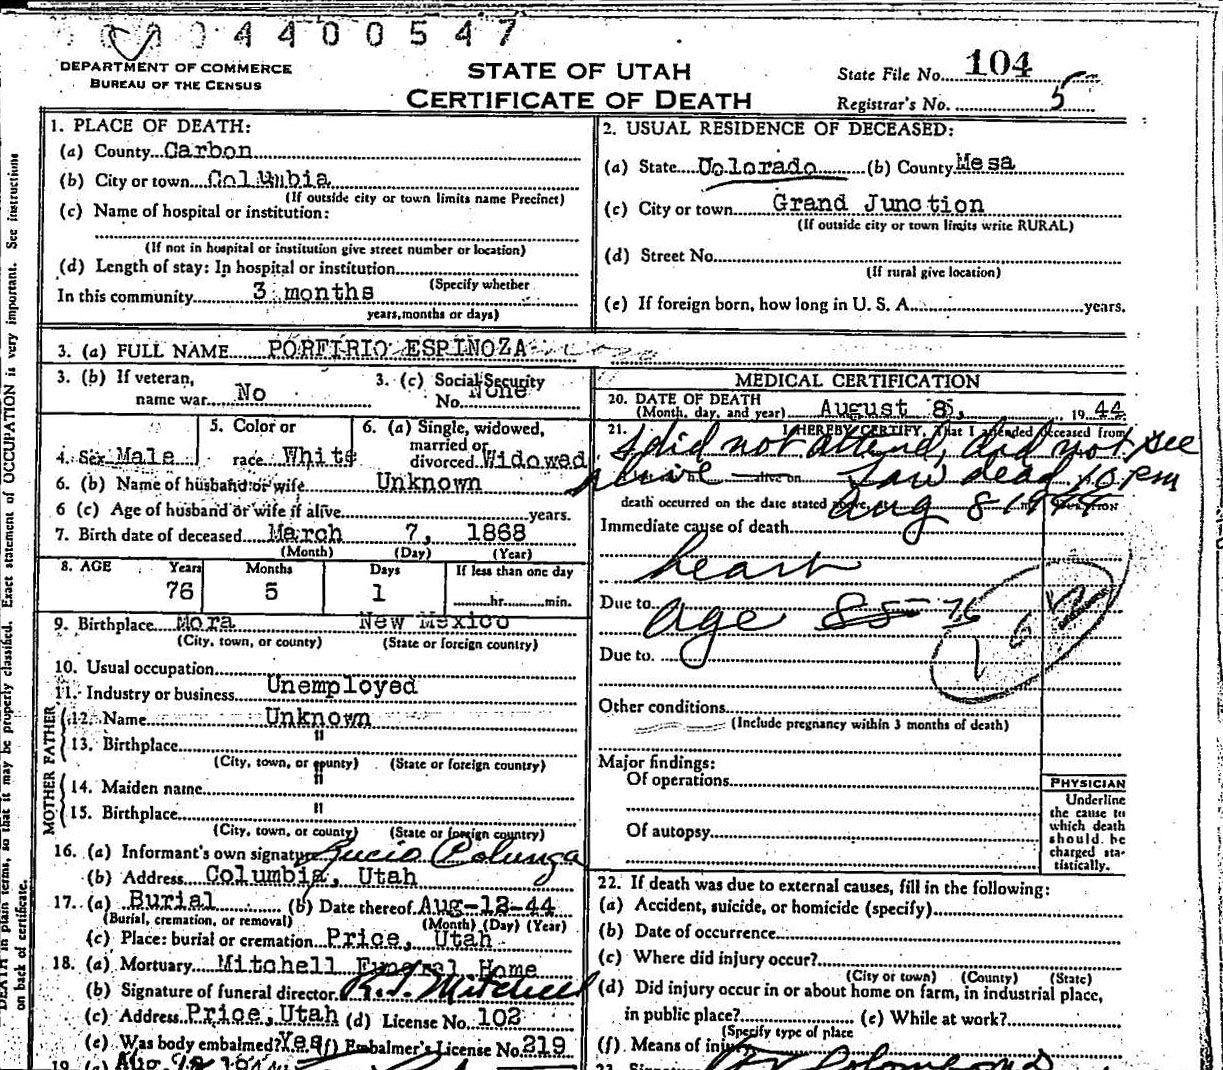 4400547
DEPARTMENT OF COMMERCE
BUREAU OF THE CENSUS
STATE OF UTAH
CERTIFICATE OF DEATH
State File No. 104
Registrar's No. 5
1. PLACE OF DEATH:
(a) County Carbon
(b) City or town Columbia
(If outside city or town limits name Precinct)
(c) Name of hospital or institution:
(If not in hospital or institution give street number or location)
(d) Length of stay: In hospital or institution
(Specify whether
In this community 3 months
years, months or days)
2. USUAL RESIDENCE OF DECEASED:
(a) State Colorado (b) County Mesa
(c) City or town Grand Junction
(If outside city or town limits write RURAL)
(d) Street No.
(If rural give location)
(e) If foreign born, how long in U. S. A. years.
3. (a) FULL NAME PORFIRIO ESPINOZA
3. (b) If veteran,
name war No
3. (c) Social Security
No. None
4. Sex Male
5. Color or
race White
6. (a) Single, widowed,
married or
divorced Widowed
6. (b) Name of husband or wife Unknown
6 (c) Age of husband or wife if alive years.
7. Birth date of deceased March 7, 1868
(Month) (Day) (Year)
8. AGE Years Months Days If less than one day
76 5 1 hr. min.
9. Birthplace Mora New Mexico
(City, town, or county) (State or foreign country)
10. Usual occupation
11. Industry or business Unemployed
FATHER
12. Name Unknown
13. Birthplace "
(City, town, or county) (State or foreign country)
MOTHER
14. Maiden name "
15. Birthplace "
(City, town, or county) (State or foreign country)
16. (a) Informant's own signature Lucio Colunga
(b) Address Columbia, Utah
17. (a) Burial (b) Date thereof Aug-12-44
(Burial, cremation, or removal) (Month) (Day) (Year)
(c) Place: burial or cremation Price, Utah
18. (a) Mortuary Mitchell Funeral Home
(b) Signature of funeral director R.J. Mitchell
(c) Address Price, Utah (d) License No. 102
(e) Was body embalmed? Yes (f) Embalmer's License No. 219
19. (a) Aug
MEDICAL CERTIFICATION
20. DATE OF DEATH
(Month, day, and year) August 8, 1944
21. I HEREBY CERTIFY, That I attended deceased from
I did not attend, did not see
alive — alive on Saw dead 10 pm
death occurred on the date stated above Aug 8 1944
Immediate cause of death
heart
Due to age 85 76
Due to.
162
Other conditions
(Include pregnancy within 3 months of death)
Major findings:
Of operations
Of autopsy
PHYSICIAN
Underline
the cause to
which death
should be
charged sta-
tistically.
22. If death was due to external causes, fill in the following:
(a) Accident, suicide, or homicide (specify)
(b) Date of occurrence
(c) Where did injury occur?
(City or town) (County) (State)
(d) Did injury occur in or about home on farm, in industrial place,
in public place? (e) While at work?
(Specify type of place
(f). Means of injury
23. Signature
DEATH in plain terms, so that it may be properly classified. Exact statement of OCCUPATION is very important. See instructions
on back of certificate.